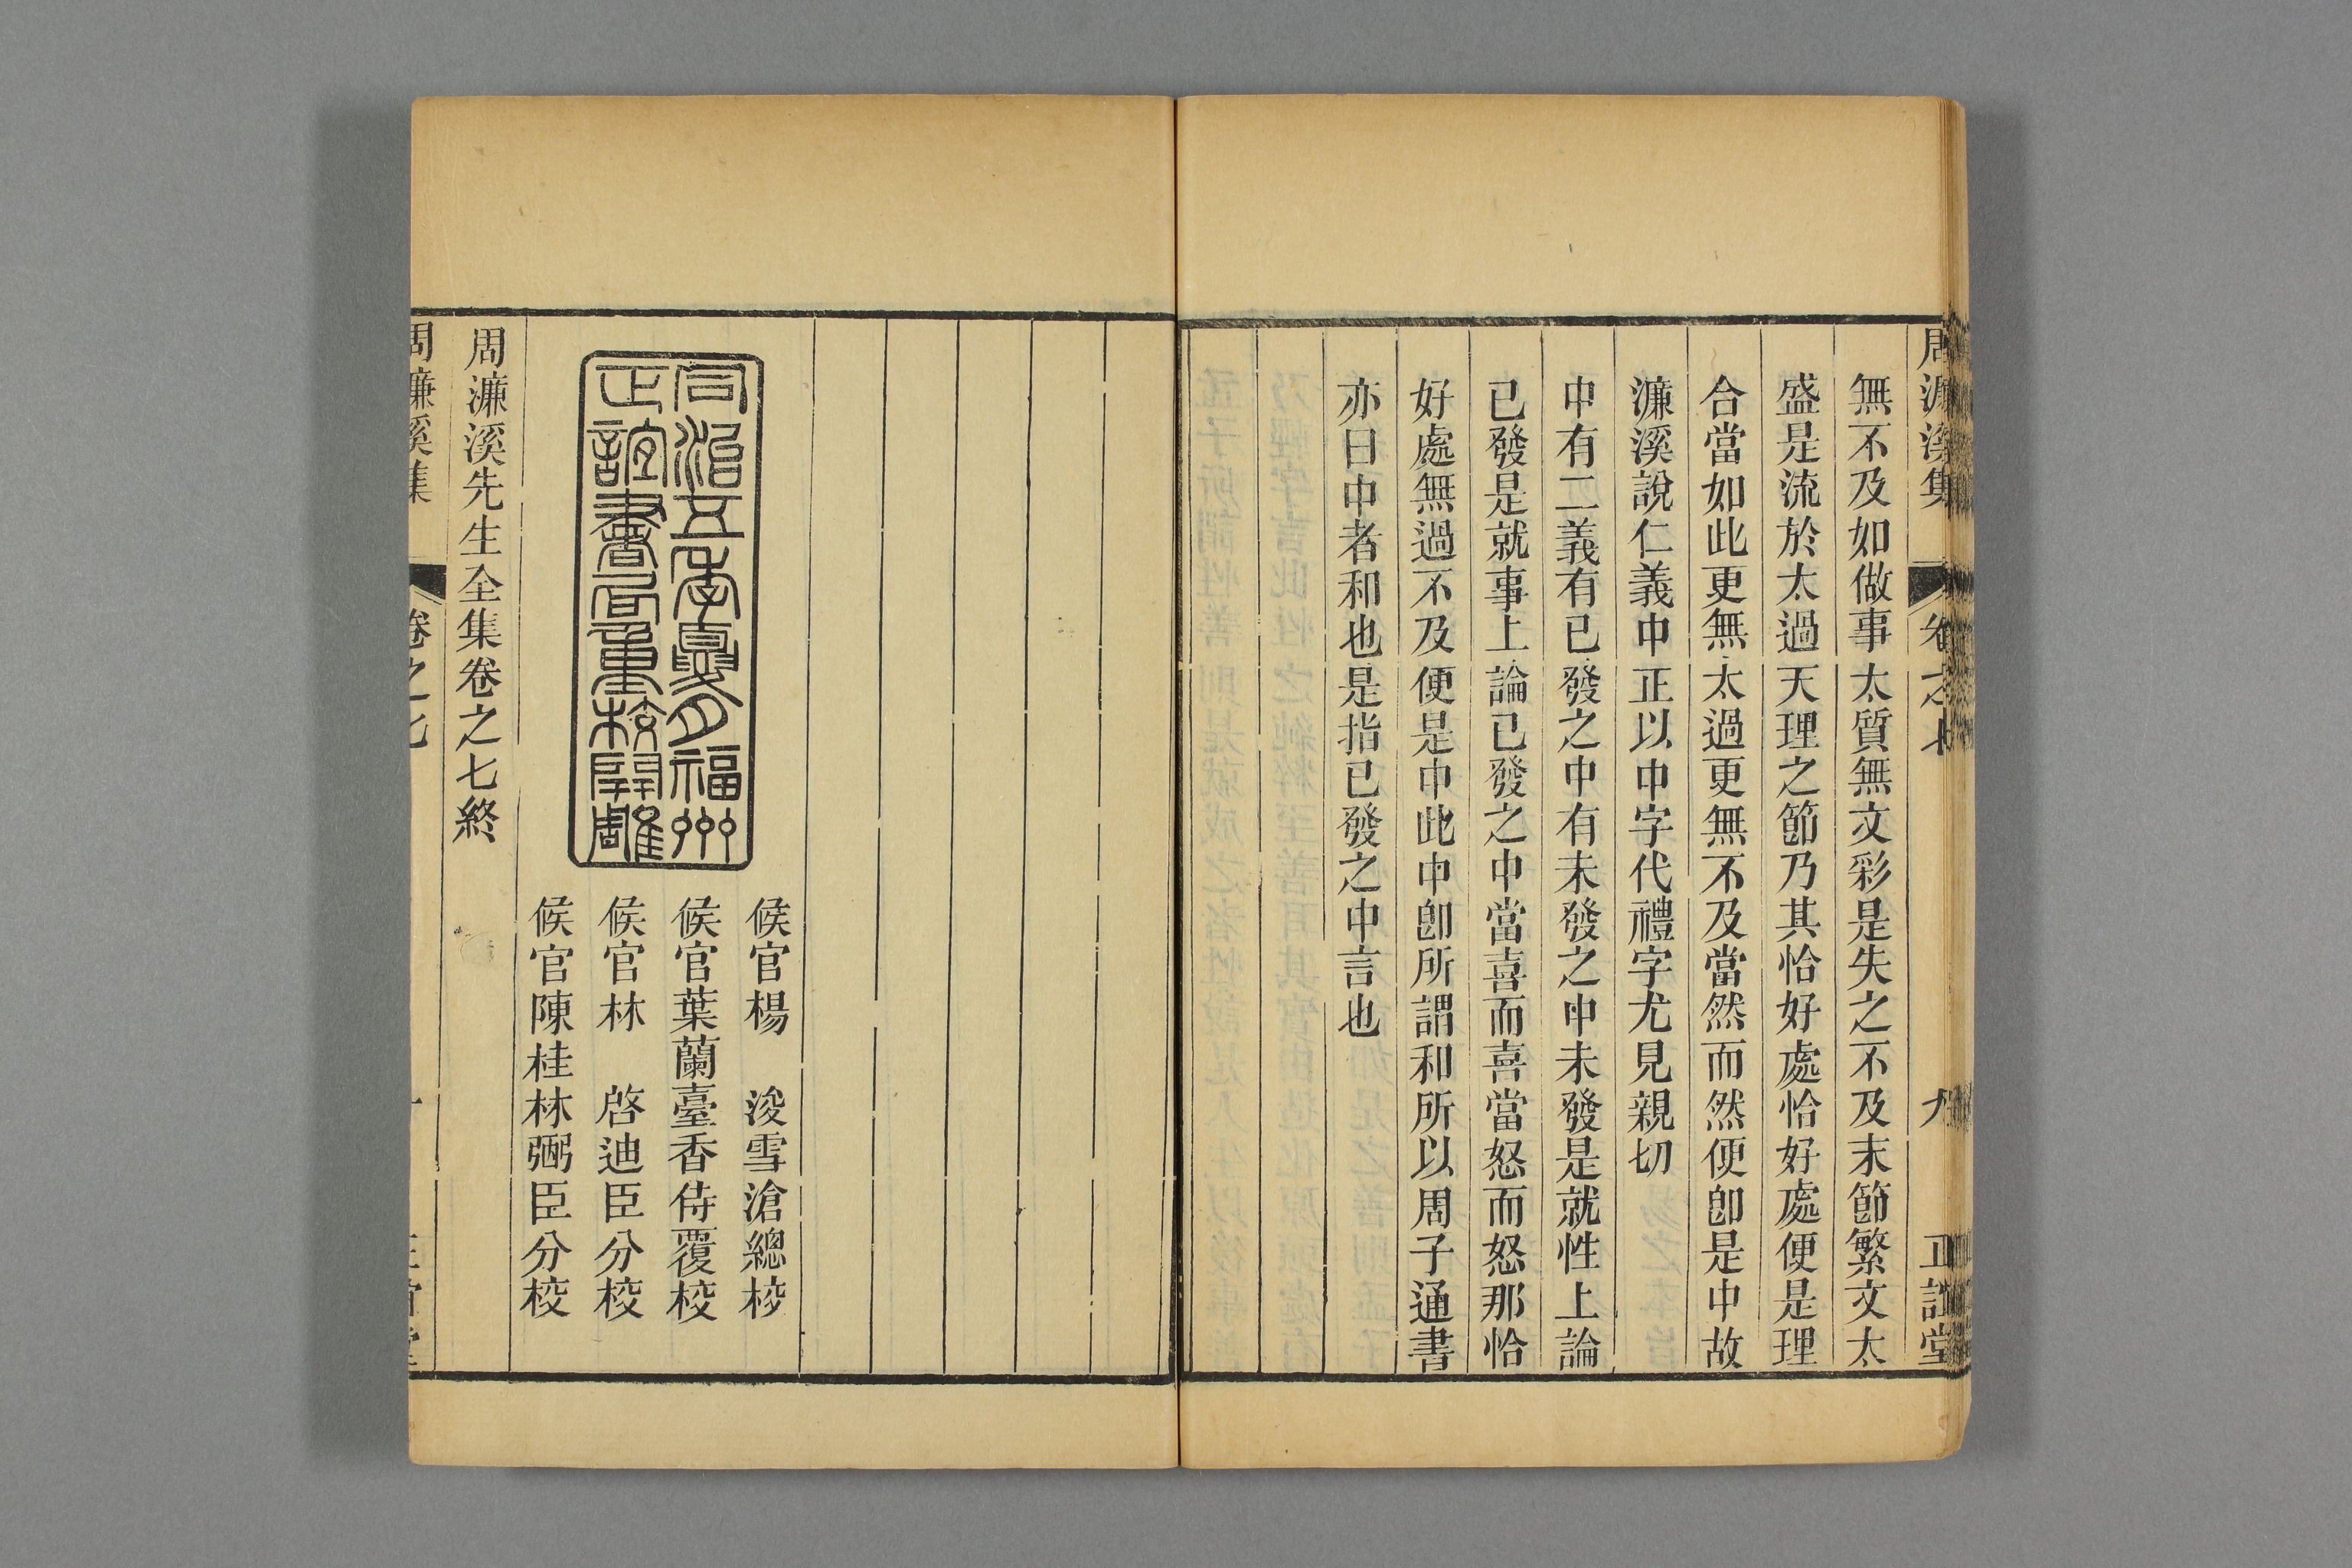 周濂溪集 卷之七 九 正誼堂
無不及如做事太質無文彩是失之不及末節繁文太
盛是流於太過天理之節乃其恰好處恰好處便是理
合當如此更無太過更無不及當然而然便卽是中故
濂溪說仁義中正以中字代禮字尤見親切
中有二義有已發之中有未發之中未發是就性上論
已發是就事上論已發之中當喜而喜當怒而怒那恰
好處無過不及便是中此中卽所謂和所以周子通書
亦曰中者和也是指已發之中言也
同治五年夏月福州
正誼書局重校開雕
候官楊 浚雪滄總校
候官葉蘭臺香侍覆校
候官林 啓迪臣分校
候官陳桂林弼臣分校
周濂溪先生全集卷之七終
周濂溪集 卷之七 十 正誼堂